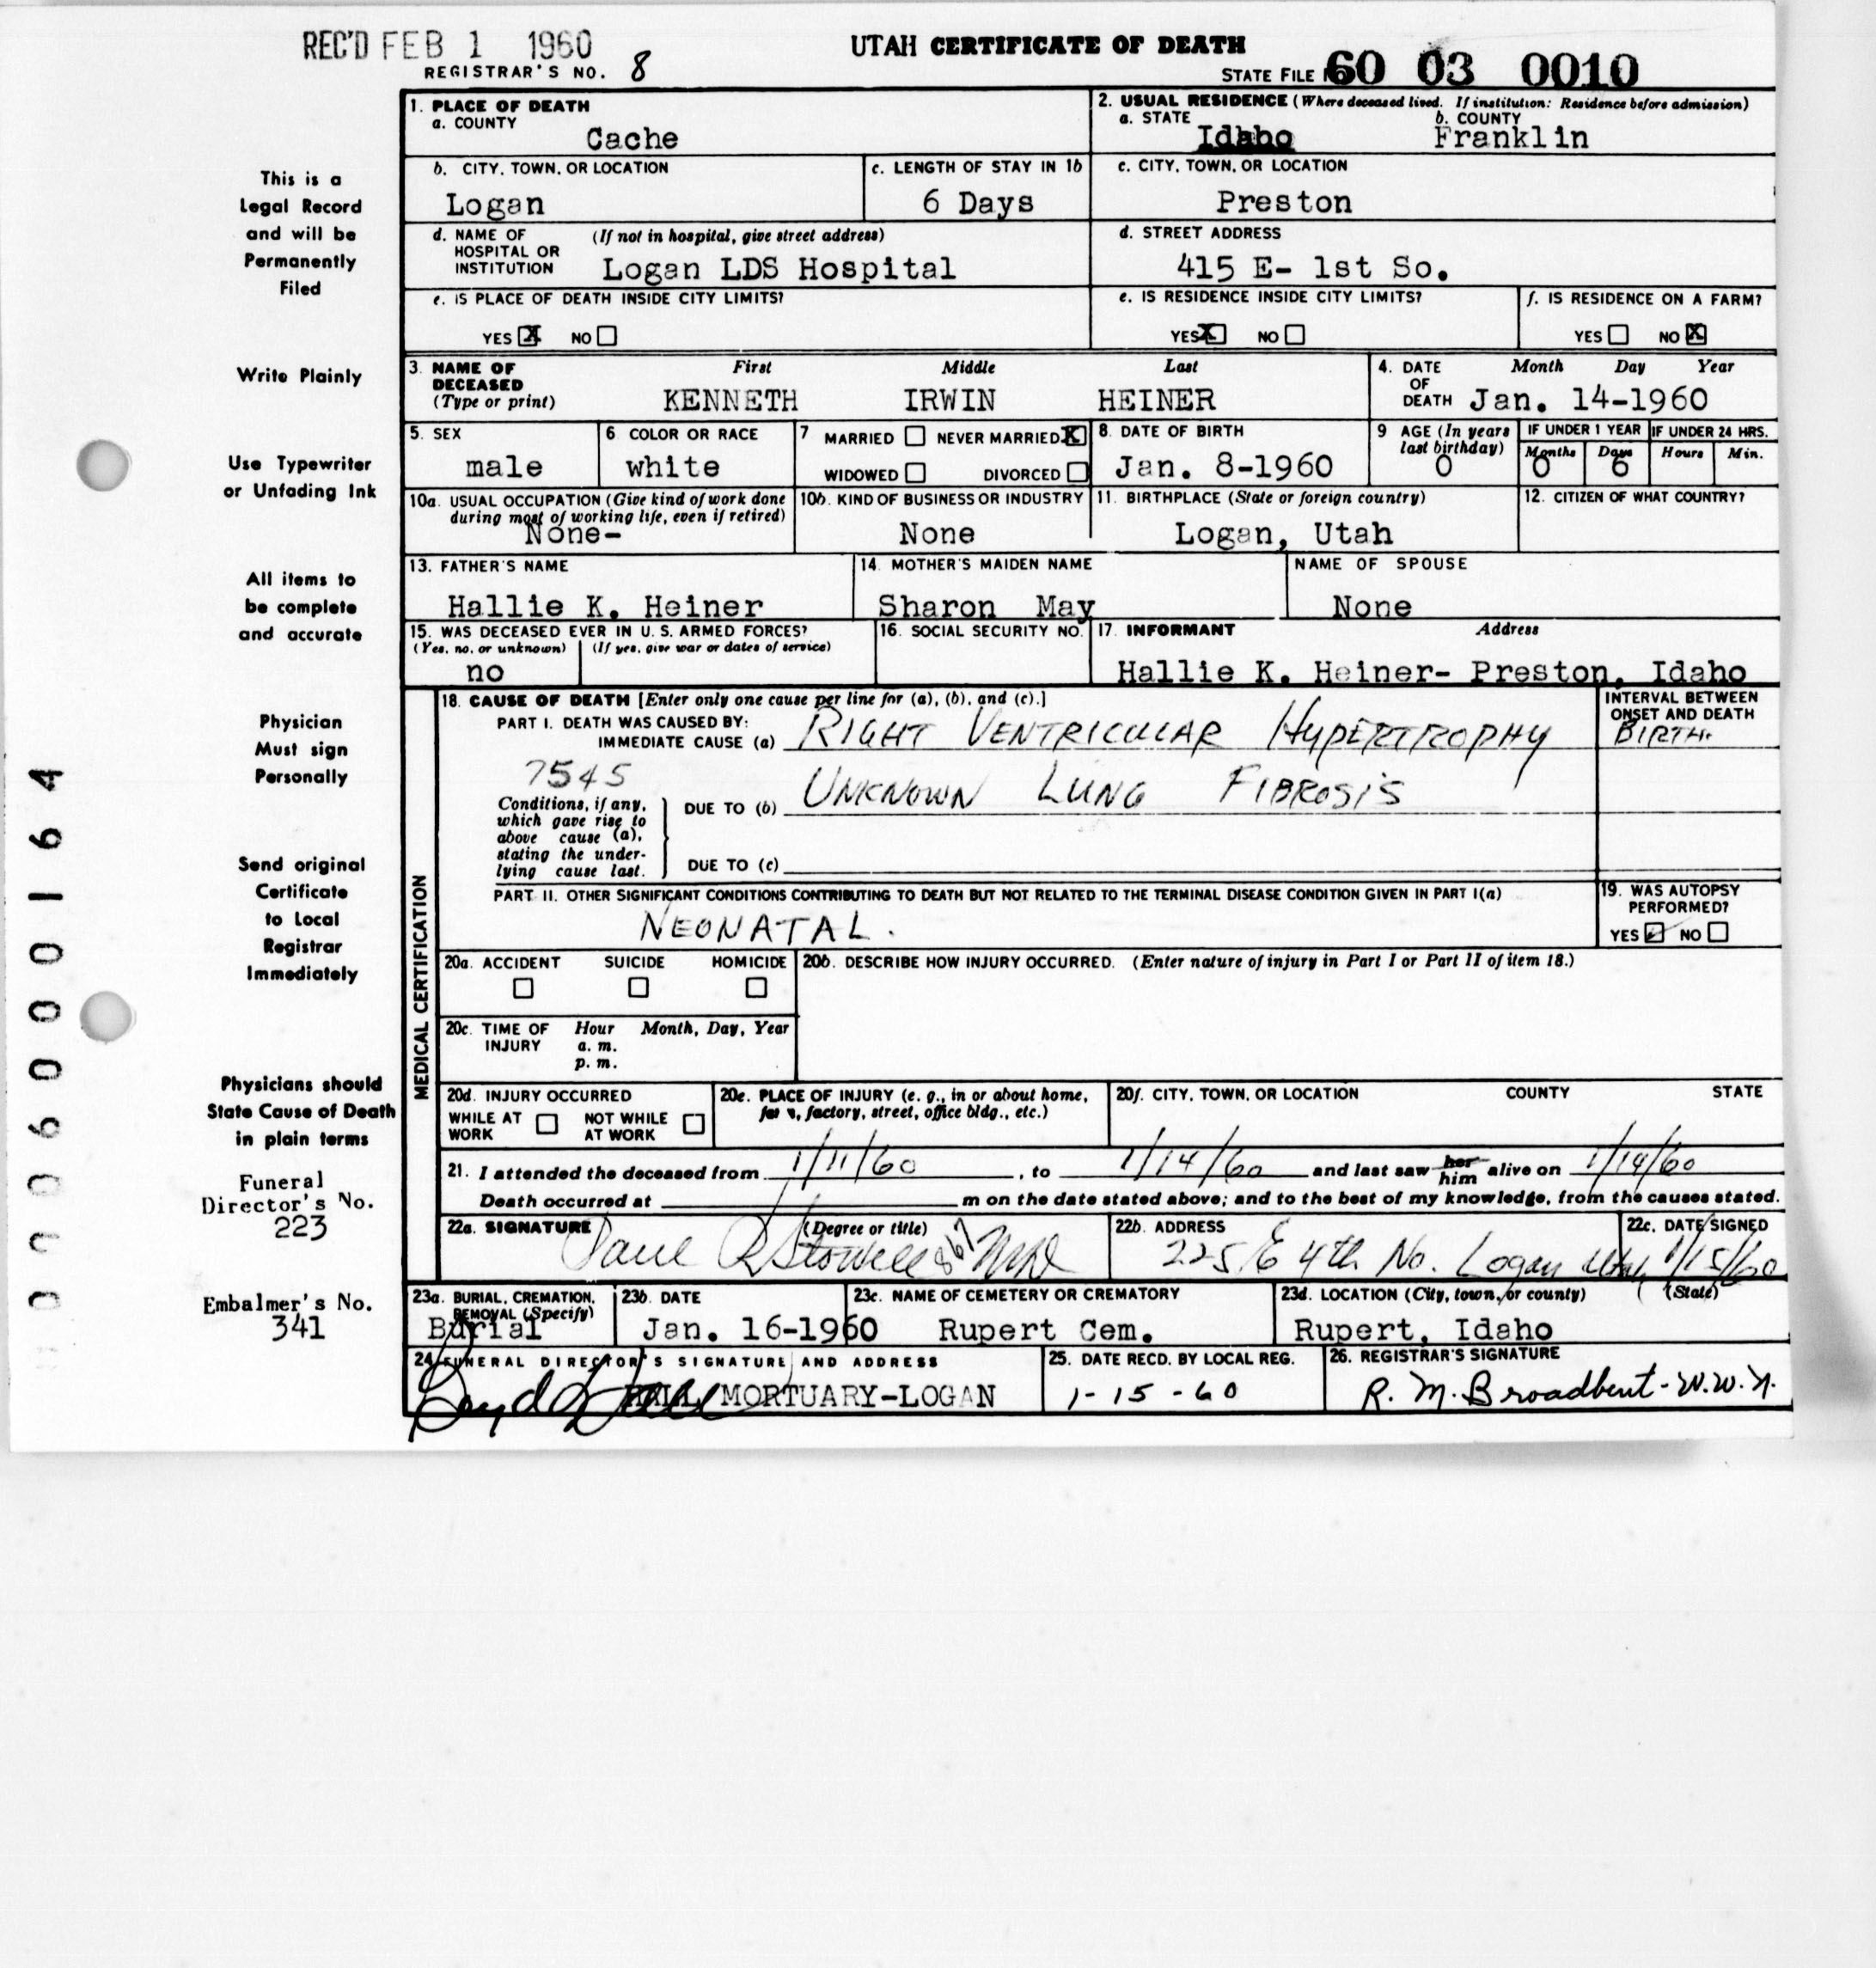 REC'D FEB 1 1960
UTAH CERTIFICATE OF DEATH
REGISTRAR'S NO. 8
STATE FILE 60 03 0010
1. PLACE OF DEATH
a. COUNTY
Cache
2. USUAL RESIDENCE (Where deceased lived. If institution: Residence before admission)
a. STATE b. COUNTY
Idaho Franklin
b. CITY, TOWN, OR LOCATION
Logan
c. LENGTH OF STAY IN 1b
6 Days
c. CITY, TOWN, OR LOCATION
Preston
d. NAME OF (If not in hospital, give street address)
HOSPITAL OR
INSTITUTION Logan LDS Hospital
d. STREET ADDRESS
415 E- 1st So.
e. IS PLACE OF DEATH INSIDE CITY LIMITS?
YES X NO
e. IS RESIDENCE INSIDE CITY LIMITS?
YES X NO
f. IS RESIDENCE ON A FARM?
YES NO X
3. NAME OF First Middle Last
DECEASED
(Type or print) KENNETH IRWIN HEINER
4. DATE Month Day Year
OF
DEATH Jan. 14-1960
5. SEX
male
6 COLOR OR RACE
white
7 MARRIED NEVER MARRIED X
WIDOWED DIVORCED
8. DATE OF BIRTH
Jan. 8-1960
9 AGE (In years
last birthday)
0
IF UNDER 1 YEAR
Months Days
0 6
IF UNDER 24 HRS.
Hours Min.
10a. USUAL OCCUPATION (Give kind of work done
during most of working life, even if retired)
None-
10b. KIND OF BUSINESS OR INDUSTRY
None
11. BIRTHPLACE (State or foreign country)
Logan, Utah
12. CITIZEN OF WHAT COUNTRY?
13. FATHER'S NAME
Hallie K. Heiner
14. MOTHER'S MAIDEN NAME
Sharon May
NAME OF SPOUSE
None
15. WAS DECEASED EVER IN U.S. ARMED FORCES?
(Yes, no, or unknown) (If yes, give war or dates of service)
no
16. SOCIAL SECURITY NO.
17. INFORMANT Address
Hallie K. Heiner- Preston, Idaho
MEDICAL CERTIFICATION
18. CAUSE OF DEATH [Enter only one cause per line for (a), (b), and (c).]
PART I. DEATH WAS CAUSED BY:
IMMEDIATE CAUSE (a) RIGHT VENTRICULAR HYPERTROPHY
INTERVAL BETWEEN
ONSET AND DEATH
BIRTH.
7545
Conditions, if any,
which gave rise to
above cause (a),
stating the under-
lying cause last.
DUE TO (b) UNKNOWN LUNG FIBROSIS
DUE TO (c)
PART II. OTHER SIGNIFICANT CONDITIONS CONTRIBUTING TO DEATH BUT NOT RELATED TO THE TERMINAL DISEASE CONDITION GIVEN IN PART I(a)
NEONATAL.
19. WAS AUTOPSY
PERFORMED?
YES NO
20a. ACCIDENT SUICIDE HOMICIDE
20b. DESCRIBE HOW INJURY OCCURRED. (Enter nature of injury in Part I or Part II of item 18.)
20c. TIME OF Hour Month, Day, Year
INJURY a. m.
p. m.
20d. INJURY OCCURRED
WHILE AT NOT WHILE
WORK AT WORK
20e. PLACE OF INJURY (e. g., in or about home,
factory, street, office bldg., etc.)
20f. CITY, TOWN, OR LOCATION COUNTY STATE
21. I attended the deceased from 1/11/60, to 1/14/60 and last saw her him alive on 1/14/60
Death occurred at m on the date stated above; and to the best of my knowledge, from the causes stated.
22a. SIGNATURE (Degree or title)
Paul R Stowell MD
22b. ADDRESS
225 E 4th No. Logan Utah
22c. DATE SIGNED
1/15/60
23a. BURIAL, CREMATION,
REMOVAL (Specify)
Burial
23b. DATE
Jan. 16-1960
23c. NAME OF CEMETERY OR CREMATORY
Rupert Cem.
23d. LOCATION (City, town, or county) (State)
Rupert, Idaho
24 FUNERAL DIRECTOR'S SIGNATURE AND ADDRESS
HALL MORTUARY-LOGAN
25. DATE RECD. BY LOCAL REG.
1-15-60
26. REGISTRAR'S SIGNATURE
R. M. Broadbent - W.W.N.
This is a
Legal Record
and will be
Permanently
Filed
Write Plainly
Use Typewriter
or Unfading Ink
All items to
be complete
and accurate
Physician
Must sign
Personally
Send original
Certificate
to Local
Registrar
Immediately
Physicians should
State Cause of Death
in plain terms
Funeral
Director's No.
223
Embalmer's No.
341